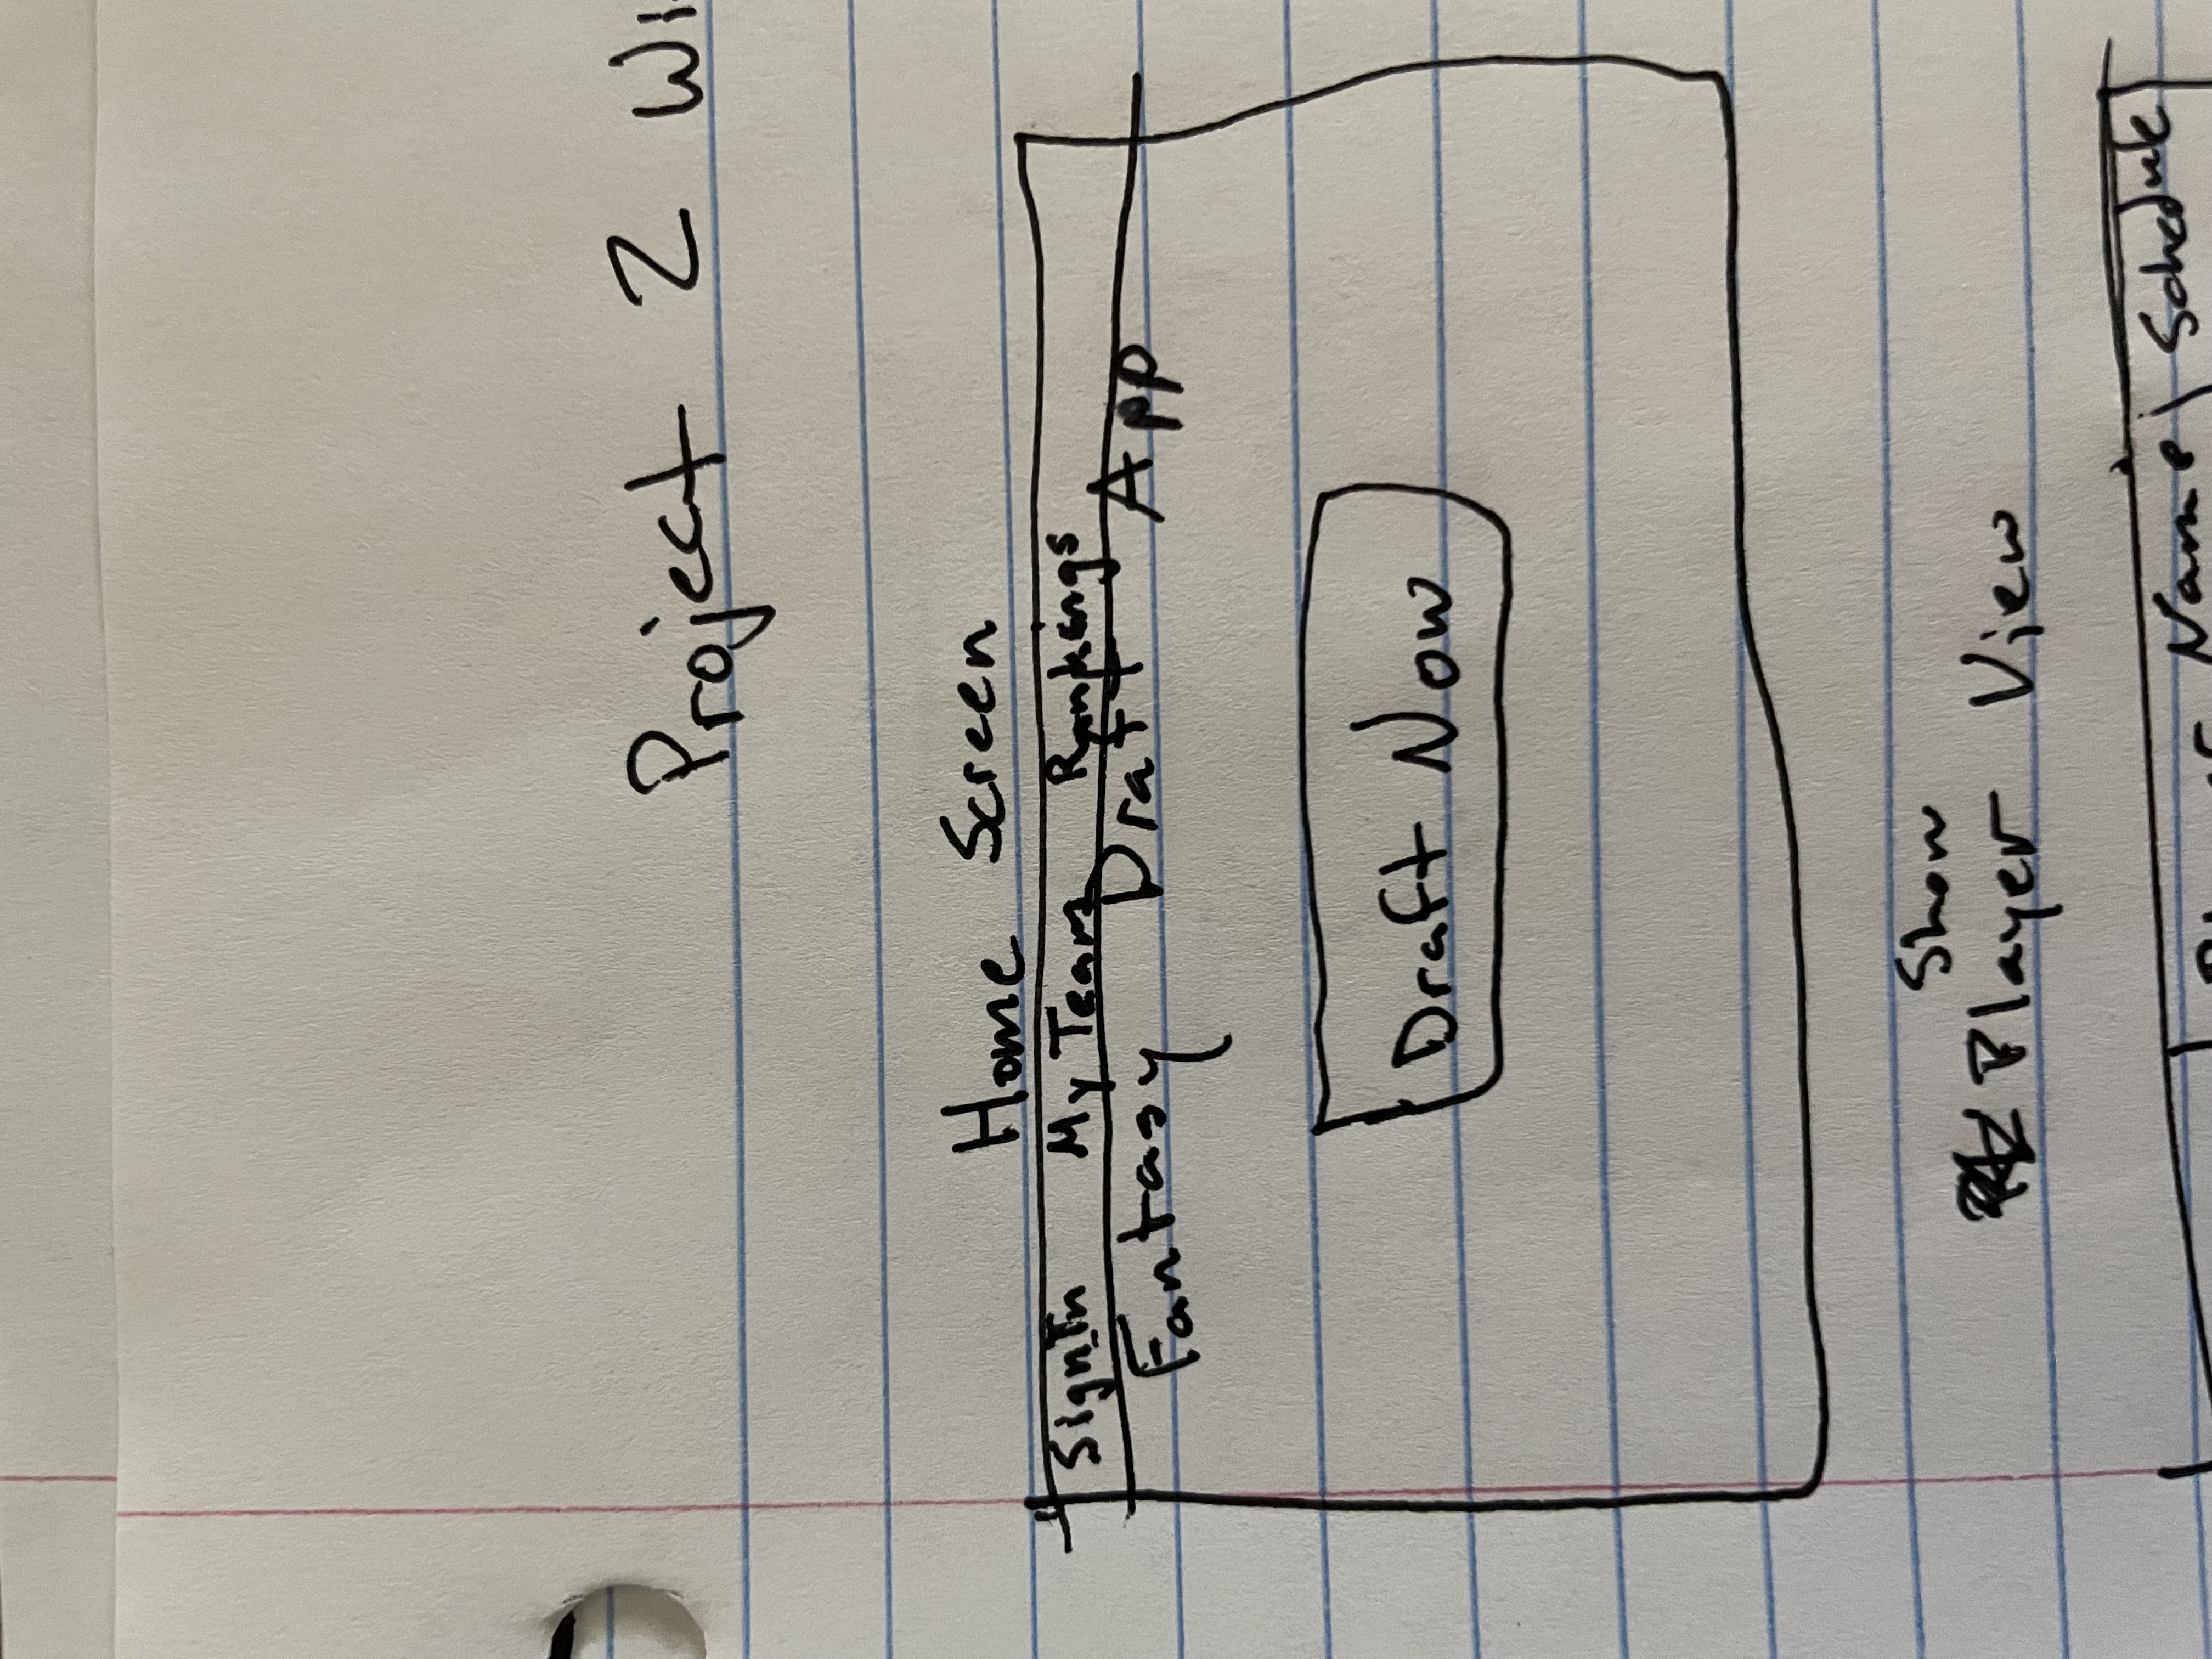 Project 2
Home Screen
Sign In My Team Rankings
Fantasy Draft App
Draft Now
Show
Player View
Name Schedule